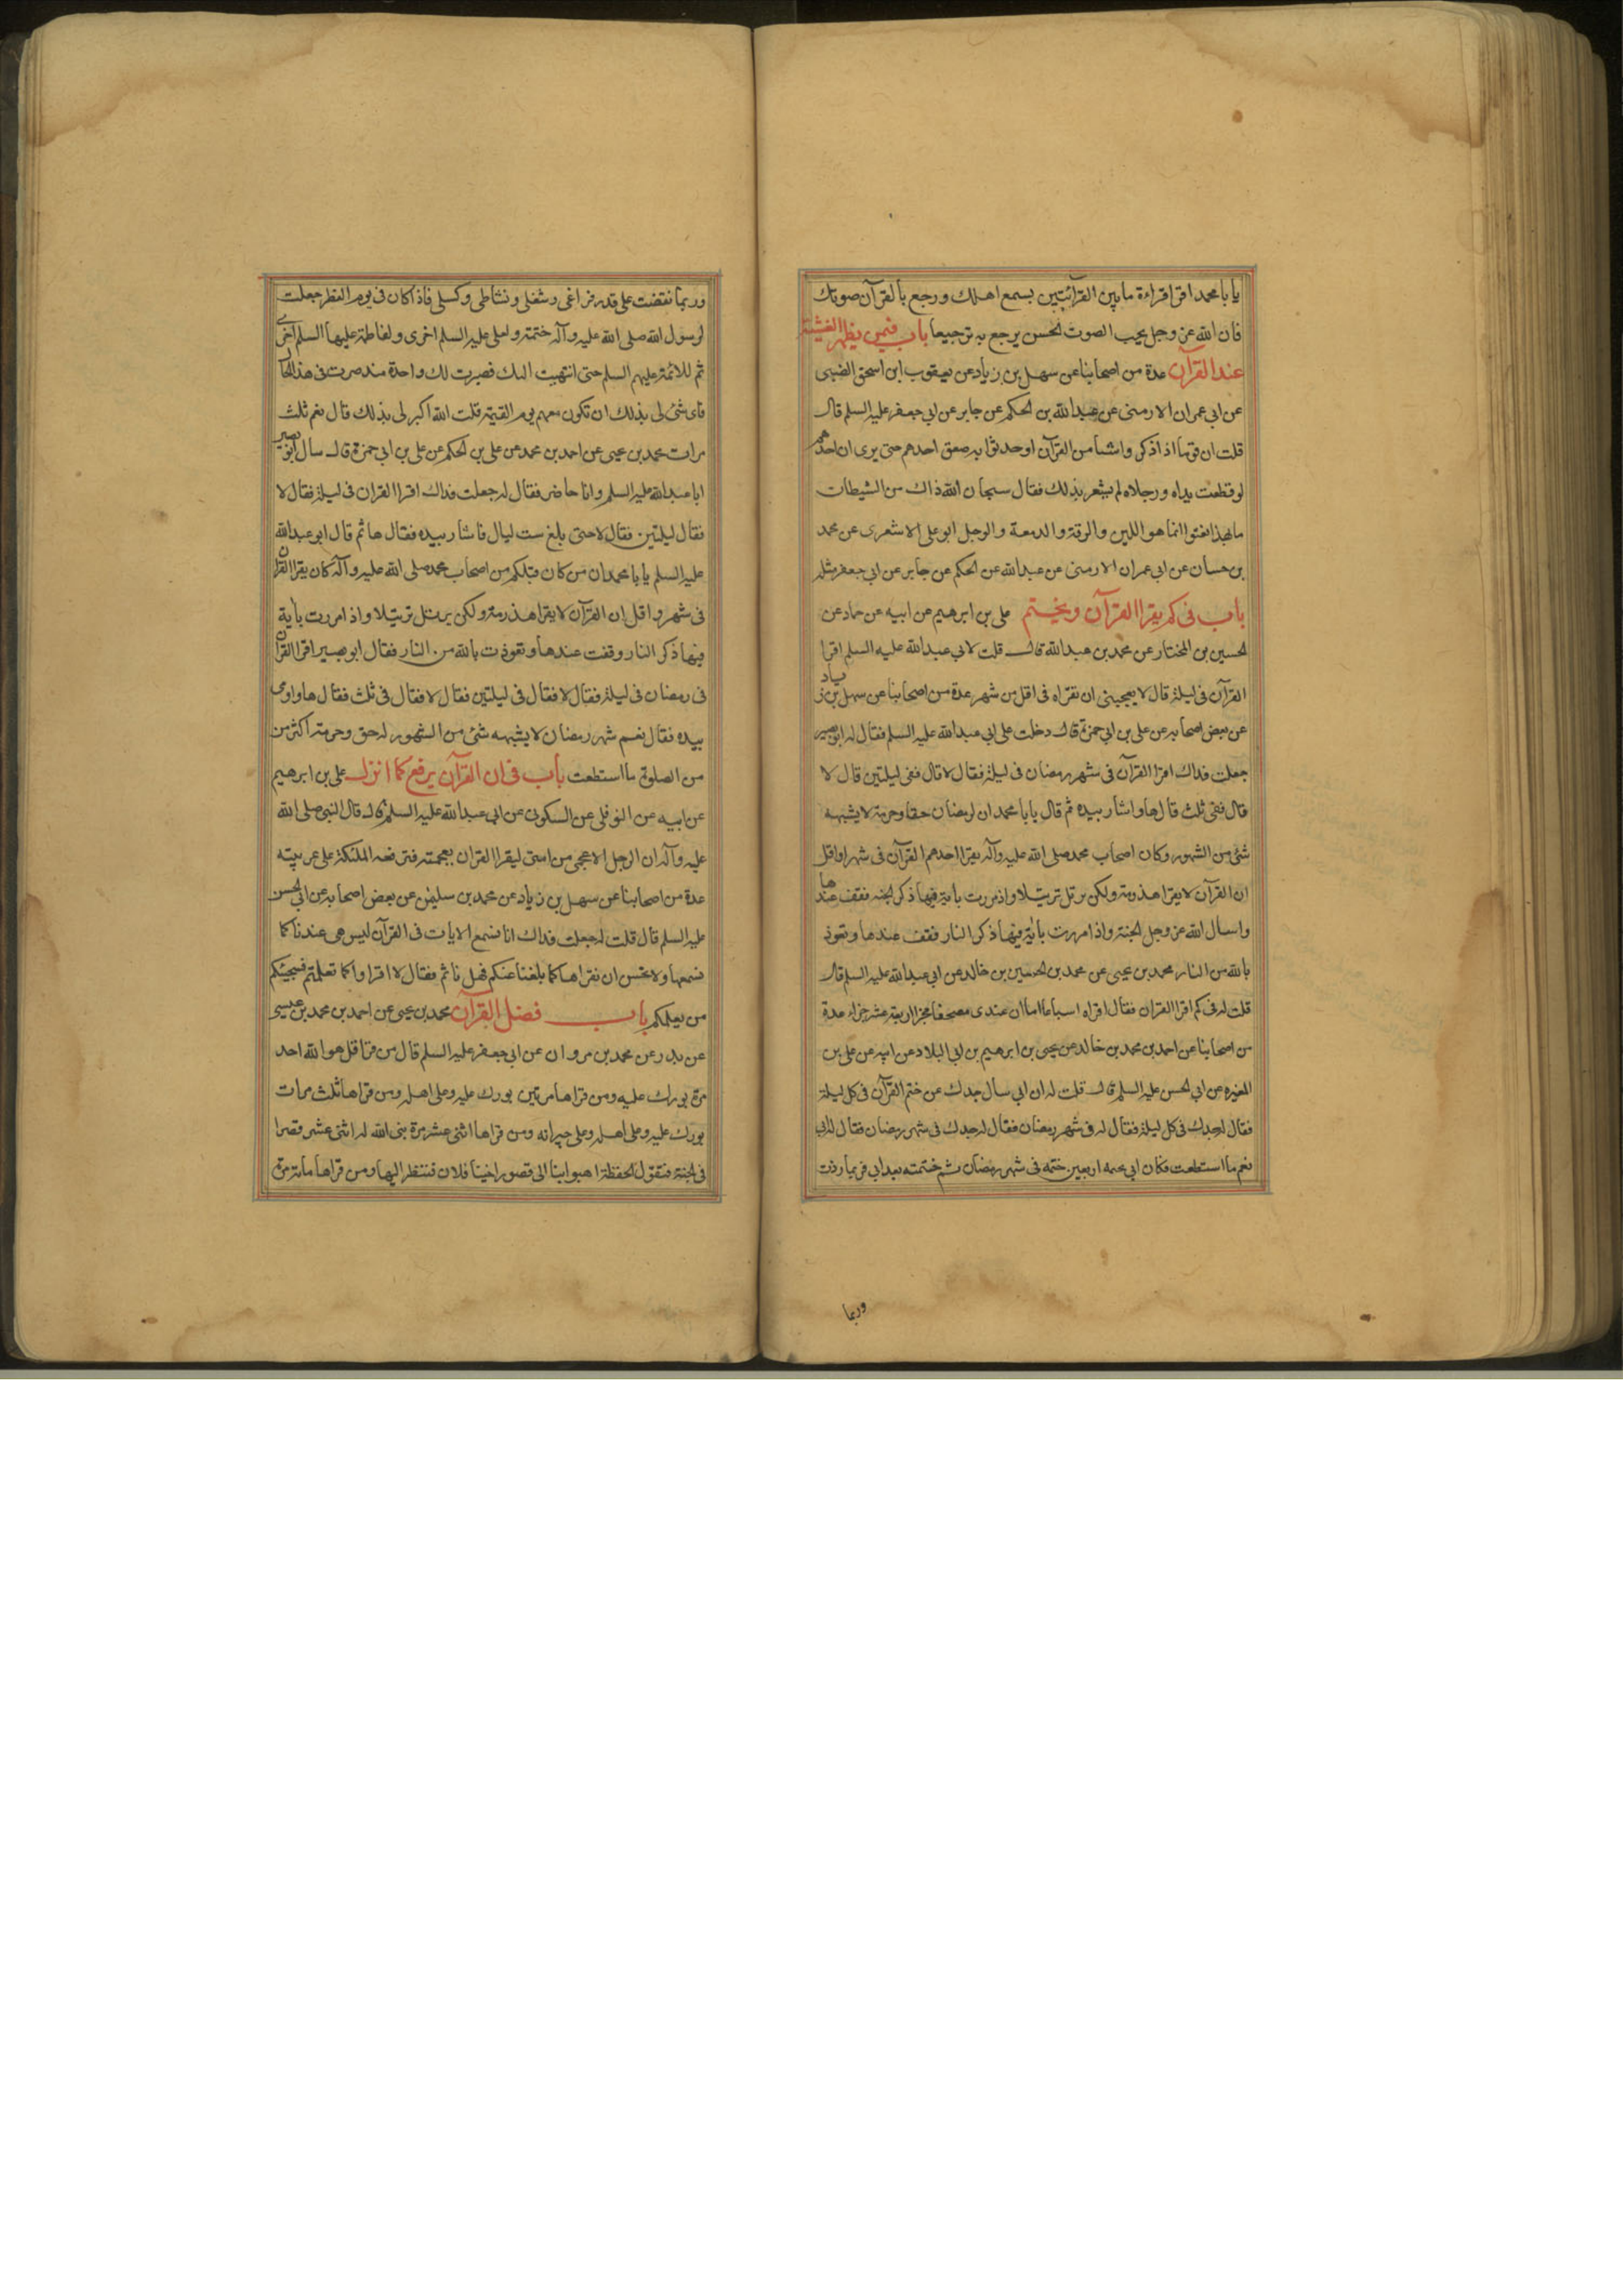 يا با محمد اقرا قراءة ما بين القرائتين يسمع اهلك ورجع بالقرآن صوتك
فان الله عز وجل يحب الصوت الحسن يرجع به ترجيعا باب فيمن يظهر الغشية
عند القرآن عدة من اصحابنا عن سهل بن زياد عن يعقوب ابن اسحق الضبى
عن ابي عمران الارمنى عن عبد الله بن الحكم عن جابر عن ابي جعفر عليه السلم قال
قلت ان قوما اذا ذكروا شيئا من القرآن او حدثوا به صعق احدهم حتى يرى ان احدهم
لو قطعت يداه ورجلاه لم يشعر بذلك فقال سبحان الله ذاك من الشيطان
ما بهذا نعتوا انما هو اللين والرقة والدمعة والوجل ابو على الاشعرى عن محمد
بن حسان عن ابى عمران الارمنى عن عبد الله عن الحكم عن جابر عن ابي جعفر مثله
باب فى كم يقرا القرآن ويختم على بن ابرهيم عن ابيه عن حماد عن
الحسين بن المختار عن محمد بن عبد الله قال قلت لابي عبد الله عليه السلم اقرا
القرآن فى ليلة قال لا يعجبنى ان تقراه فى اقل من شهر عدة من اصحابنا عن سهل بن زياد
عن بعض اصحابه عن على بن ابي حمزة قال دخلت على ابي عبد الله عليه السلم فقال له ابو بصير
جعلت فداك اقرا القرآن فى شهر رمضان فى ليلة فقال لا قال ففى ليلتين قال لا
قال ففى ثلث قال ها واشار بيده ثم قال يا با محمد ان لرمضان حقا وحرمة لا يشبهه
شئ من الشهور وكان اصحاب محمد صلى الله عليه وآله يقرا احدهم القرآن فى شهر او اقل
ان القرآن لا يقرا هذرمة ولكن يرتل ترتيلا واذ مررت باية فيها ذكر الجنه فقف عندها
واسال الله عز وجل الجنة واذا مررت باية فيها ذكر النار فقف عندها وتعوذ
بالله من النار محمد بن يحيى عن محمد بن الحسين بن خالد عن ابي عبد الله عليه السلم قال
قلت له فى كم اقرا القران فقال اقراه اسباعا اما ان عندى مصحفا مجزا اربعة عشر جزاء عدة
من اصحابنا عن احمد بن محمد بن خالد عن يحيى بن ابرهيم بن ابي البلاد عن ابيه عن على بن
المغيره عن ابي الحسن عليه السلم قال قلت له ان ابي سال جدك عن ختم القرآن فى كل ليلة
فقال له جدك فى كل ليلة فقال له فى شهر رمضان فقال له جدك فى شهر رمضان فقال له ابى
نعم ما استطعت فكان ابي يختمه اربعين ختمه فى شهر رمضان ثم ختمته بعد ابي فربما زدت
وربما
وربما نقصت على قدر فراغى وشغلى ونشاطى وكسلى فاذا كان فى يوم الفطر جعلت
لرسول الله صلى الله عليه وآله ختمة ولعلى عليه السلم اخرى ولفاطمة عليها السلم اخرى
ثم للائمة عليهم السلم حتى انتهيت اليك فصيرت لك واحدة منذ صرت فى هذا الحال
فاى شئ لى بذلك ان تكون معهم يوم القيمة قلت الله اكبر لى بذلك قال نعم ثلث
مرات محمد بن يحيى عن احمد بن محمد عن على بن الحكم عن على بن ابي حمزة قال سال ابو بصير
ابا عبد الله عليه السلم وانا حاضر فقال له جعلت فداك اقرا القران فى ليلة فقال لا
فقال ليلتين فقال لا حتى بلغ ست ليال فاشار بيده فقال ها ثم قال ابو عبد الله
عليه السلم يا با محمد ان من كان قبلكم من اصحاب محمد صلى الله عليه وآله كان يقرا القران
فى شهر واقل ان القرآن لا يقرا هذرمة ولكن يرتل ترتيلا واذ امررت بأية
فيها ذكر النار وقفت عندها وتعوذت بالله من النار فقال ابو بصير اقرا القران
فى رمضان فى ليلة فقال لا فقال فى ليلتين فقال لا فقال فى ثلث فقال ها واومى
بيده فقال نعم شهر رمضان لا يشبهه شئ من الشهور له حق وحرمة اكثر من
من الصلوة ما استطعت باب فى ان القرآن يرفع كما انزل على بن ابرهيم
عن ابيه عن النوفلى عن السكونى عن ابي عبد الله عليه السلم قال قال النبى صلى الله
عليه وآله ان الرجل الاعجمى من امتى ليقرا القران بعجمته فترفعه الملئكة على عربيته
عدة من اصحابنا عن سهل بن زياد عن محمد بن سليمن عن بعض اصحابه عن ابى الحسن
عليه السلم قال قلت له جعلت فداك انا نسمع الايات فى القرآن ليس هى عندنا كما
نسمعها ولا نحسن ان نقراها كما بلغنا عنكم فهل ناثم فقال لا اقراوا كما تعلمتم فسيجيئكم
من يعلمكم باب فضل القرآن محمد بن يحيى عن احمد بن محمد بن عيسى
عن بدر عن محمد بن مروان عن ابي جعفر عليه السلم قال من قرا قل هو الله احد
مرة بورك عليه ومن قراها مرتين بورك عليه وعلى اهله ومن قراها ثلث مرات
بورك عليه وعلى اهله وعلى جيرانه ومن قراها اثنى عشر مرة بنى الله له اثنى عشر قصرا
فى الجنة فتقول الحفظة اهبوا بنا الى قصور اخينا فلان فننظر اليها ومن قراها مائة مرة